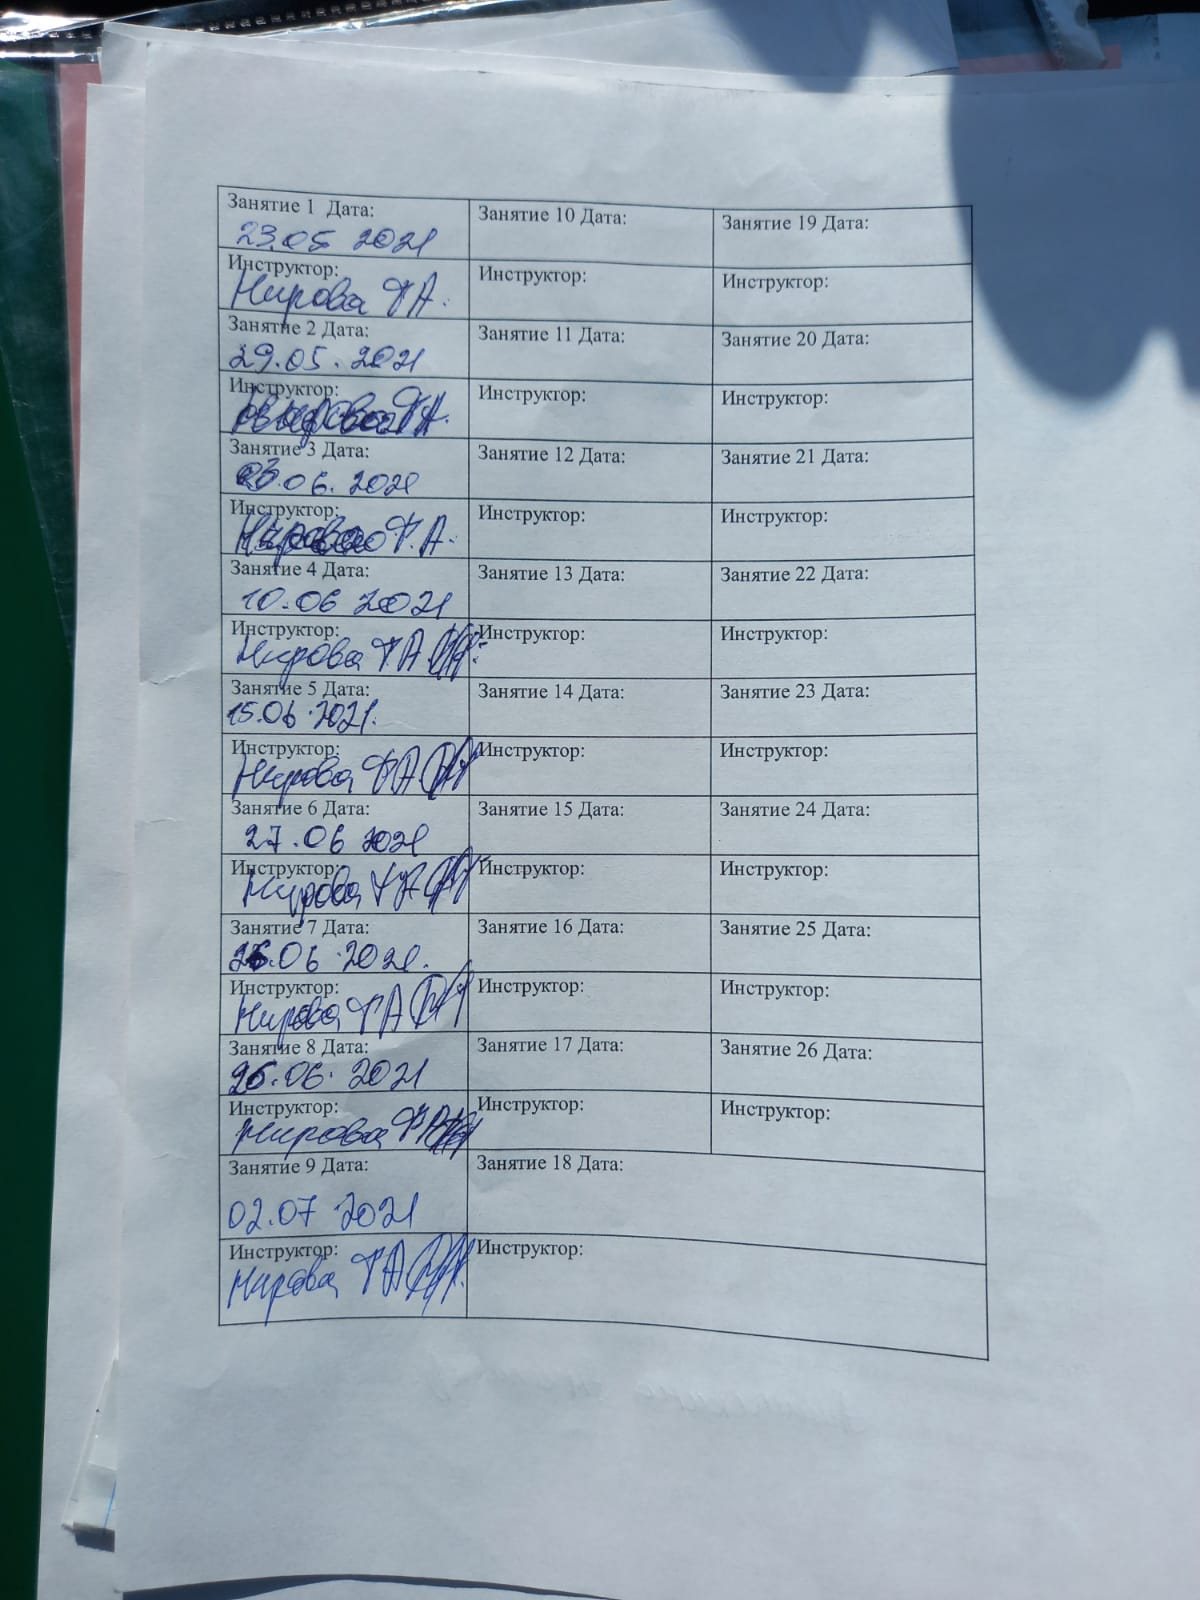 Занятие 1 Дата:
23.05 2021
Инструктор:
Нирова Т А.
Занятие 2 Дата:
29.05. 2021
Инструктор:
Т.А.
Занятие 3 Дата:
03.06. 2021
Инструктор:
Нирова Т.А.
Занятие 4 Дата:
10.06 2021
Инструктор:
Нирова Т А
Занятие 5 Дата:
15.06.2021.
Инструктор:
Нирова Т А
Занятие 6 Дата:
27.06 2021
Инструктор:
Нирова
Занятие 7 Дата:
.06.2021.
Инструктор:
Нирова Т А
Занятие 8 Дата:
.06. 2021
Инструктор:
Нирова Т А
Занятие 9 Дата:
02.07.2021
Инструктор:
Нирова Т А
Занятие 10 Дата:
Инструктор:
Занятие 11 Дата:
Инструктор:
Занятие 12 Дата:
Инструктор:
Занятие 13 Дата:
Инструктор:
Занятие 14 Дата:
Инструктор:
Занятие 15 Дата:
Инструктор:
Занятие 16 Дата:
Инструктор:
Занятие 17 Дата:
Инструктор:
Занятие 18 Дата:
Инструктор:
Занятие 19 Дата:
Инструктор:
Занятие 20 Дата:
Инструктор:
Занятие 21 Дата:
Инструктор:
Занятие 22 Дата:
Инструктор:
Занятие 23 Дата:
Инструктор:
Занятие 24 Дата:
Инструктор:
Занятие 25 Дата:
Инструктор:
Занятие 26 Дата:
Инструктор: